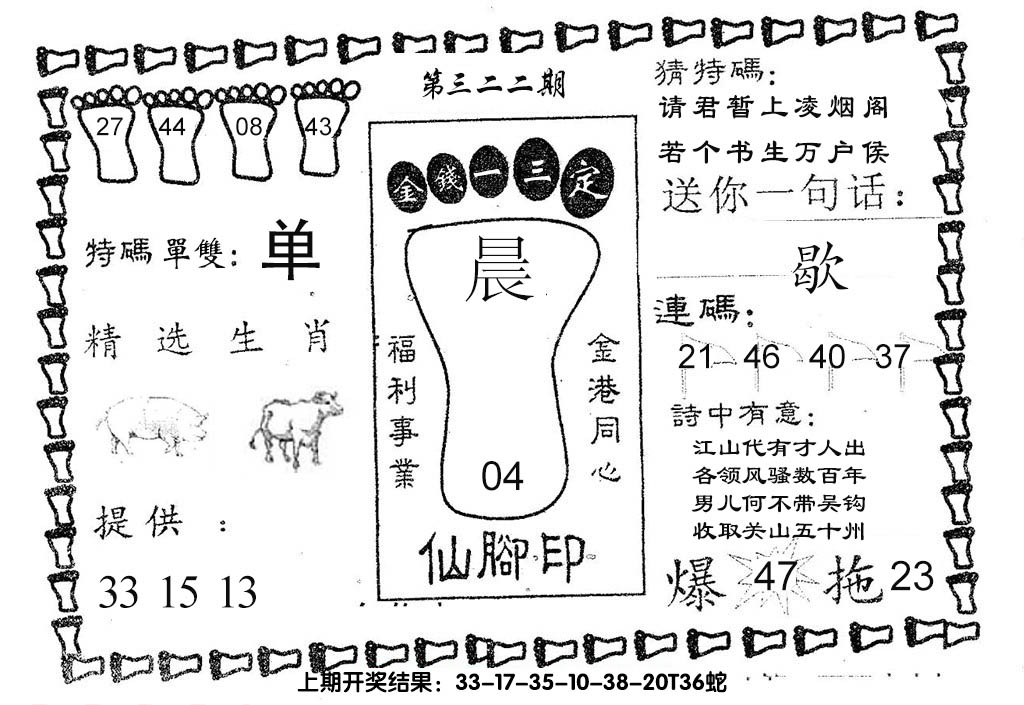 第三二二期
27 44 08 43
特碼單雙：单
精选生肖
提供：
33 15 13
金錢一三定
晨
福利事業
金港同心
04
仙腳印
猜特碼：
请君暂上凌烟阁
若个书生万户侯
送你一句话：
歇
連碼：
21 46 40 37
詩中有意：
江山代有才人出
各领风骚数百年
男儿何不带吴钩
收取关山五十州
爆 47 拖 23
上期开奖结果：33-17-35-10-38-20T36蛇